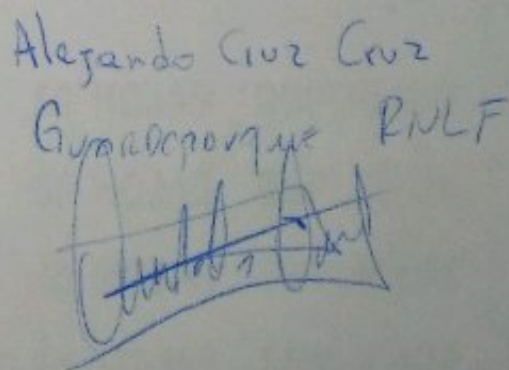 Alejando Cruz Cruz
Guardaparque RNLF